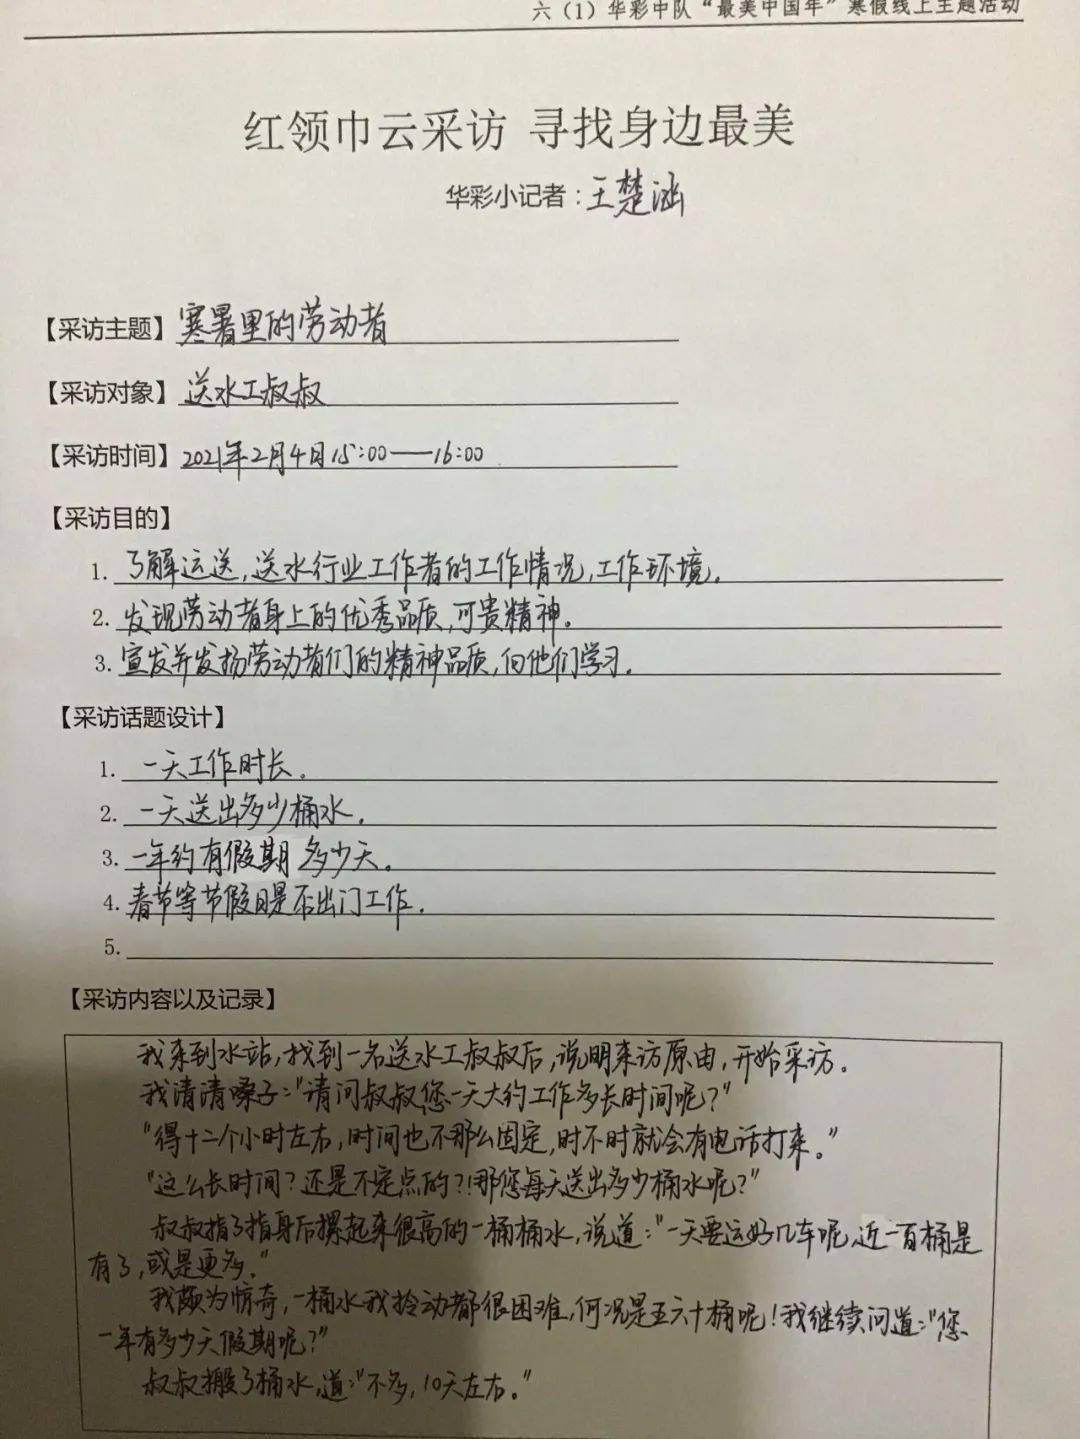 六（1）华彩中队“最美中国年”寒假线上主题活动
红领巾云采访 寻找身边最美
华彩小记者：王楚涵
【采访主题】寒暑里的劳动者
【采访对象】送水工叔叔
【采访时间】2021年2月4日15:00——16:00
【采访目的】
1. 了解运送,送水行业工作者的工作情况,工作环境。
2. 发现劳动者身上的优秀品质,可贵精神。
3. 宣发并发扬劳动者们的精神品质,向他们学习。
【采访话题设计】
1. 一天工作时长。
2. 一天送出多少桶水。
3. 一年约有假期多少天。
4. 春节等节假日是否出门工作。
5.
【采访内容以及记录】
我来到水站,找到一名送水工叔叔后,说明来访原由,开始采访。
我清清嗓子:“请问叔叔您一天大约工作多长时间呢?”
“得十二个小时左右,时间也不那么固定,时不时就会有电话打来。”
“这么长时间?还是不定点的?!那您每天送出多少桶水呢?”
叔叔指了指身后摞起来很高的一桶桶水,说道:“一天要运好几车呢,近一百桶是
有了,或是更多。”
我颇为惊奇,一桶水我拎动都很困难,何况是五六十桶呢!我继续问道:“您
一年有多少天假期呢?”
叔叔搬了桶水,道:“不多,10天左右。”